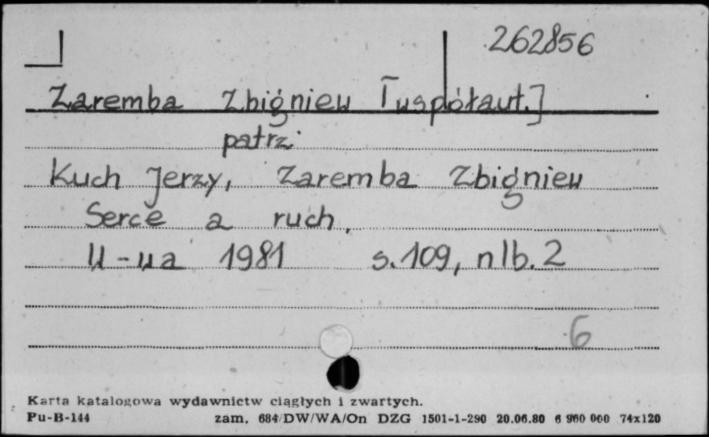 262856
Zaremba Zbigniew [współaut.]
patrz:
Kuch Jerzy, Zaremba Zbigniew
Serce a ruch.
W-wa 1981 s. 109, nlb. 2
6
Karta katalogowa wydawnictw ciągłych i zwartych.
Pu-B-144 zam. 684/DW/WA/On DZG 1501-1-290 20.06.80 6 960 000 74x120